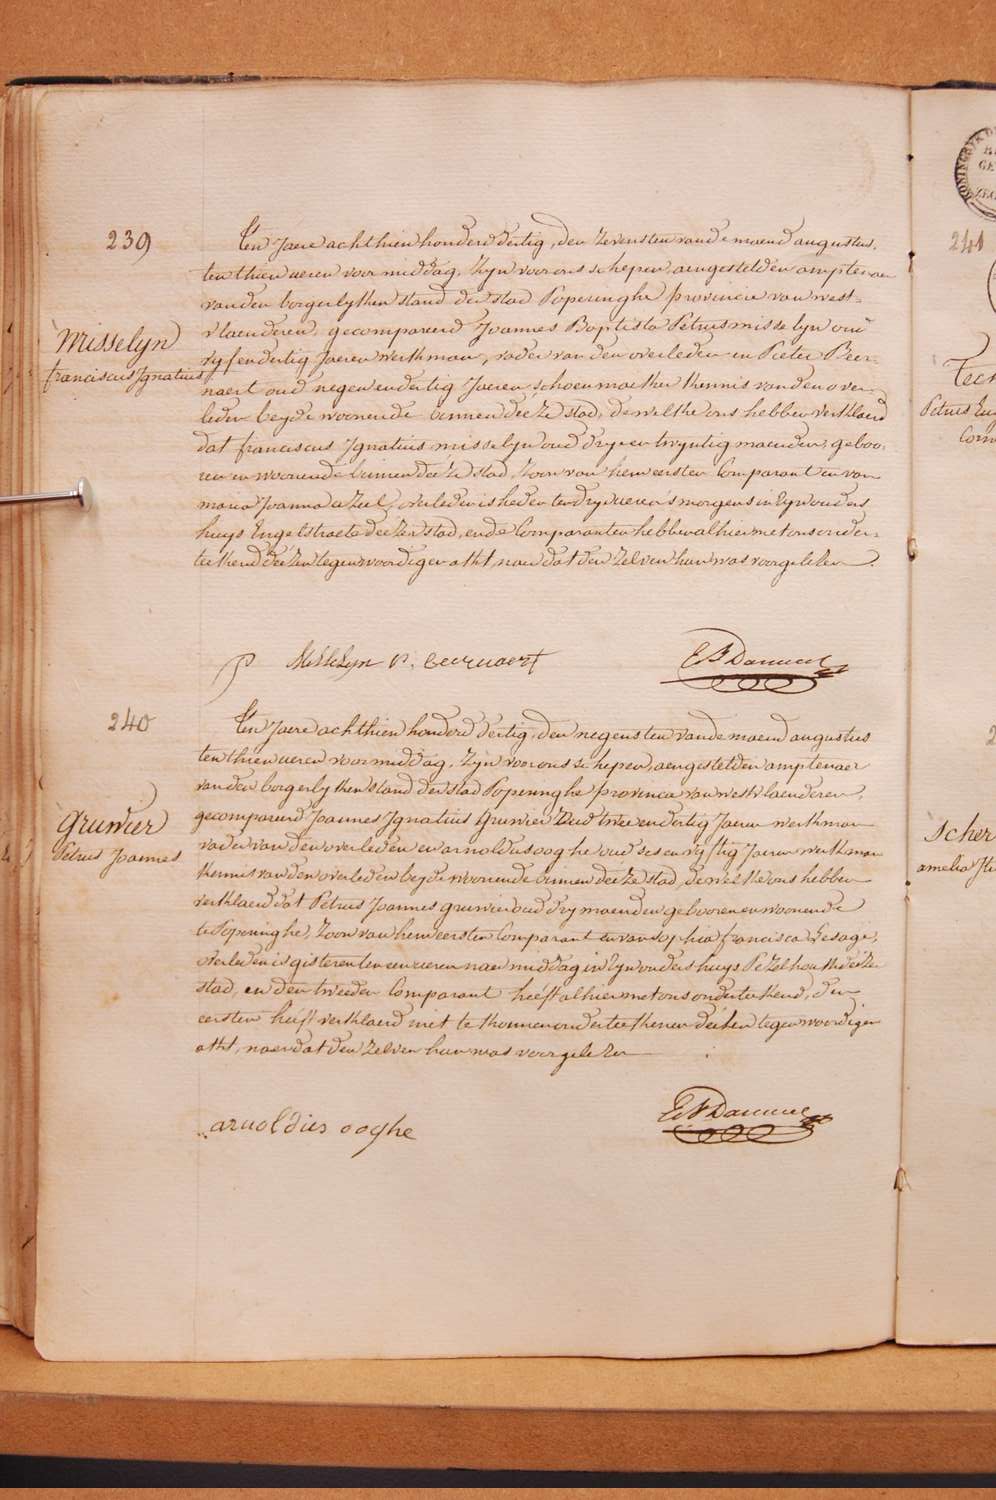 239
Misselyn
franciscus Ignatius
Ten Jaere achthien honderd dertig, den zevensten van de maend augustus,
ten thien ueren voormiddag, zyn voor ons schepen, aengestelden amptenaer
van den borgerlyken stand der stad Poperinghe provincie van west=
vlaenderen, gecompareerd Joannes Baptista Petrus misselyn oud
vyfendertig Jaeren werkman, vader van den overleden en Pieter Beer-
naert oud negenendertig Jaeren schoenmaeker kennis van den over-
leden beyde woonende binnen deeze stad, de welke ons hebben verklaerd
dat franciscus Ignatius misselyn oud dryentwyntig maenden, geboo-
ren en woonende binnen deeze stad, zoon van hem eersten Comparant en van
maria Joanna aZeel, overleden is heden ten dry ueren s'morgens in zyn ouders
huys Engelstraete deezer stad, ende Comparanten hebben alhier met ons onder-
teekend deezen tegenwoordigen akt, naer dat den zelven hun was voorgelezen.
Misselyn P. beernaert
240
Gruwier
Petrus Joannes
Ten Jaere achthien honderd dertig, den negensten van de maend augustus
ten thien ueren voormiddag, zyn voor ons schepen, aengestelden amptenaer
van den borgerlyken stand der stad Poperinghe provincie van westvlaenderen,
gecompareerd Joannes Ignatius Gruwier Oud twee en dertig Jaeren werkman
vader van den overleden en arnoldus ooghe oud ses en vyftig Jaeren werkman
kennis van den overleden beyde woonende binnen deeze stad, de welke ons hebben
verklaerd dat Petrus Joannes gruwier oud dry maenden gebooren en woonende
te Poperinghe, Zoon van hem eersten Comparant en van sophia francisca Lesage,
overleden is gisteren ten een ueren naermiddag in zyn ouders huys Pezelhoek deezer
stad, en den tweeden Comparant heeft alhier met ons onderteekend, den
eersten heeft verklaerd niet te konnen onderteekenen deezen tegenwoordigen
akt, naer dat den zelven hun was voorgelezen
arnoldus ooghe
241
Petrus Eug
Scher
amelia